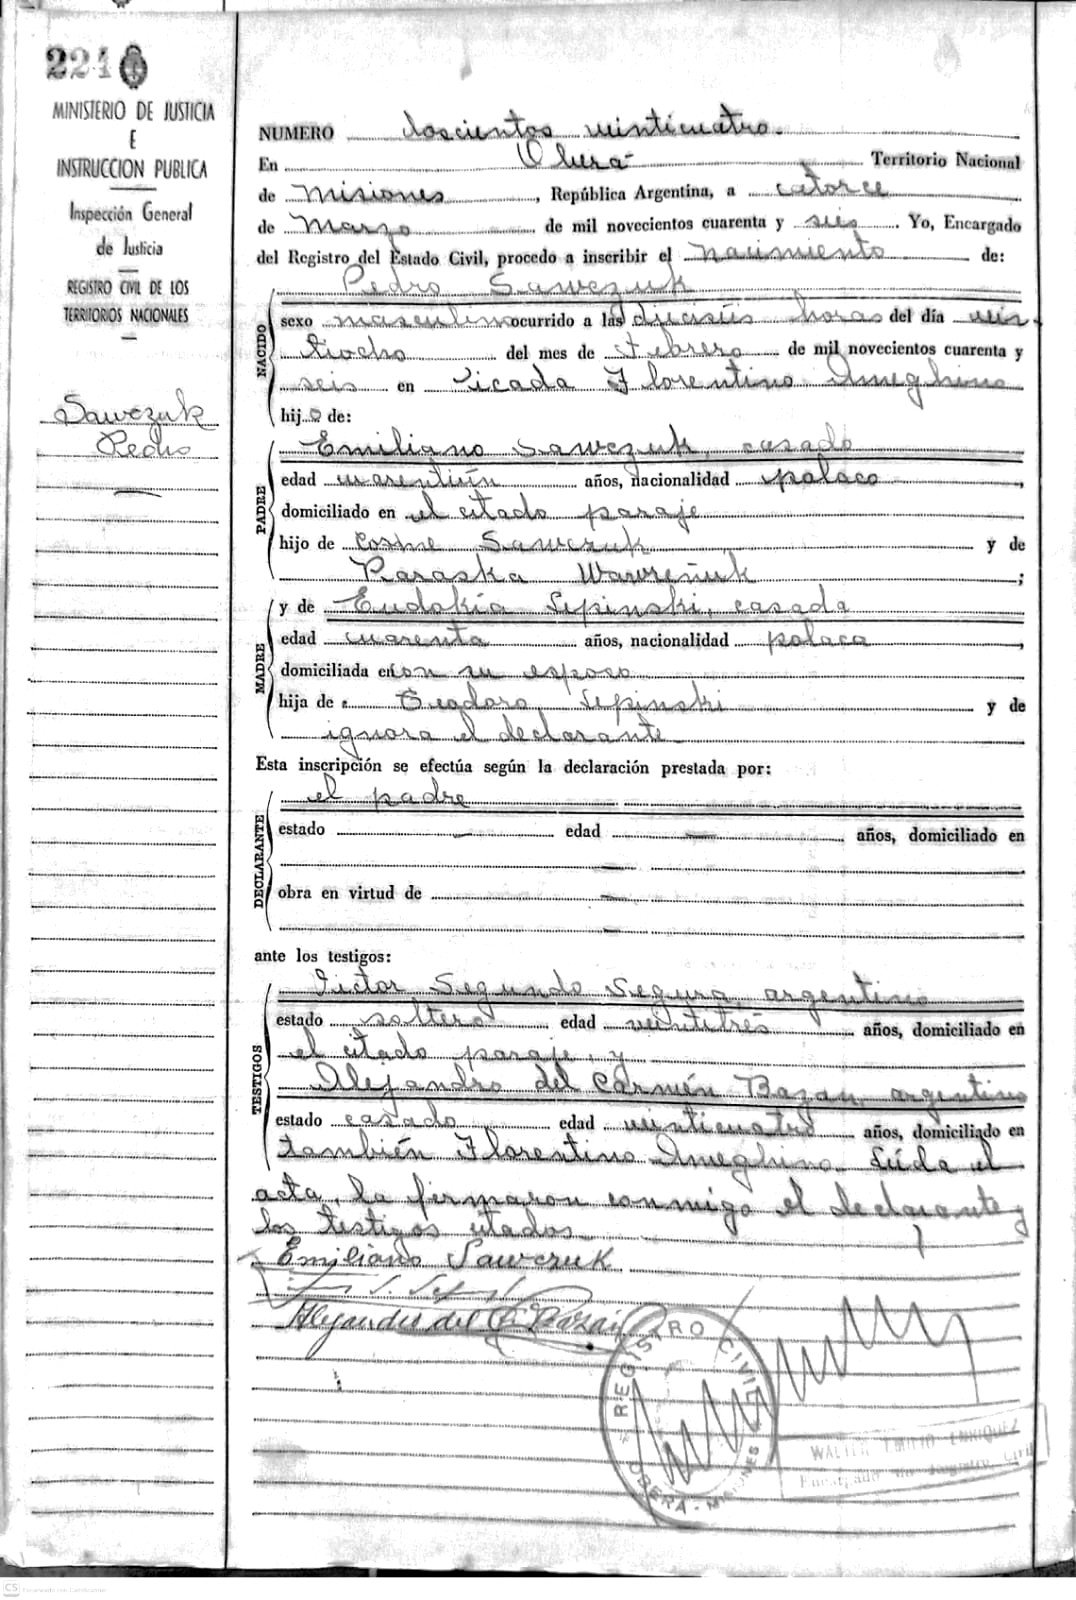 224
MINISTERIO DE JUSTICIA
E
INSTRUCCION PUBLICA
Inspección General
de Justicia
REGISTRO CIVIL DE LOS
TERRITORIOS NACIONALES
Sawczuk
Pedro
NUMERO doscientos veinticuatro.
En Oberá Territorio Nacional
de Misiones, República Argentina, a catorce
de Marzo de mil novecientos cuarenta y seis. Yo, Encargado
del Registro del Estado Civil, procedo a inscribir el nacimiento de:
Pedro Sawczuk
NACIDO
sexo masculino ocurrido a las dieciséis horas del día vein
tiocho del mes de Febrero de mil novecientos cuarenta y
seis en Picada Florentino Ameghino
hijo de:
PADRE
Emiliano Sawczuk, casado
edad cuarentiún años, nacionalidad polaco,
domiciliado en el citado paraje
hijo de Cosme Sawczuk y de
Paraska Wawreñuk;
MADRE
y de Eudokia Lipinski, casada
edad cuarenta años, nacionalidad polaca,
domiciliada en con su esposo
hija de Teodoro Lipinski y de
ignora el declarante
Esta inscripción se efectúa según la declaración prestada por:
DECLARANTE
el padre
estado — edad — años, domiciliado en
obra en virtud de
ante los testigos:
TESTIGOS
Victor Segundo Segura, argentino
estado soltero edad veintitrés años, domiciliado en
el citado paraje, y
Alejandro del Carmén Bazan, argentino
estado casado edad veinticuatro años, domiciliado en
también Florentino Ameghino. Leída el
acta, la firmaron conmigo el declarante y
los testigos citados
Emiliano Sawczuk
Alejandro del C. Bazán
REGISTRO CIVIL
OBERA - MISIONES
WALTER EMILIO ENRIQUEZ
Encargado del Registro Civil
CS Escaneado con CamScanner